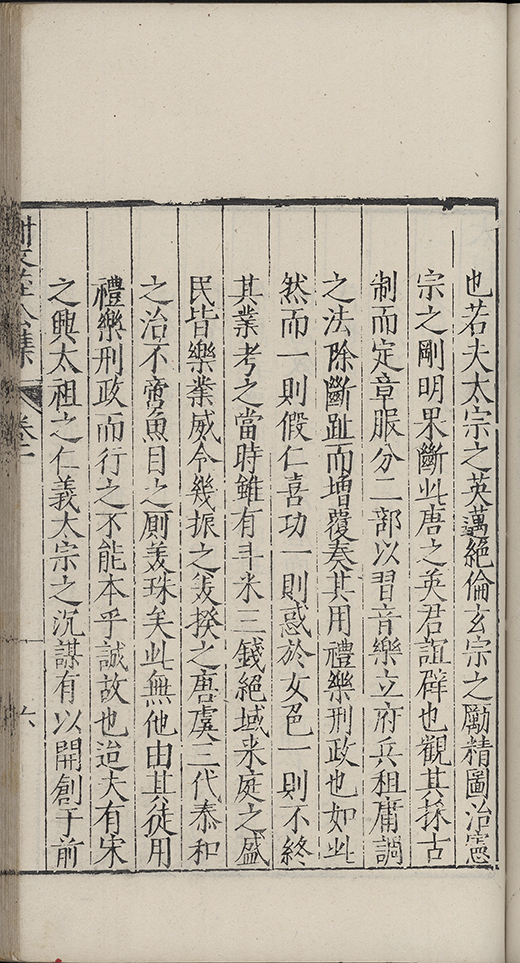 也若夫太宗之英邁絕倫玄宗之勵精圖治憲
宗之剛明果斷此唐之英君誼辟也觀其採古
制而定章服分二部以習音樂立府兵租庸調
之法除斷趾而增覆奏其用禮樂刑政也如此
然而一則假仁喜功一則惑於女色一則不終
其業考之當時雖有斗米三錢絕域来庭之盛
民皆樂業威令幾振之美揆之唐虞三代泰和
之治不啻魚目之厠美珠矣此無他由其徒用
禮樂刑政而行之不能本乎誠故也迨夫有宋
之興太祖之仁義太宗之沉謀有以開創于前
卷二
六